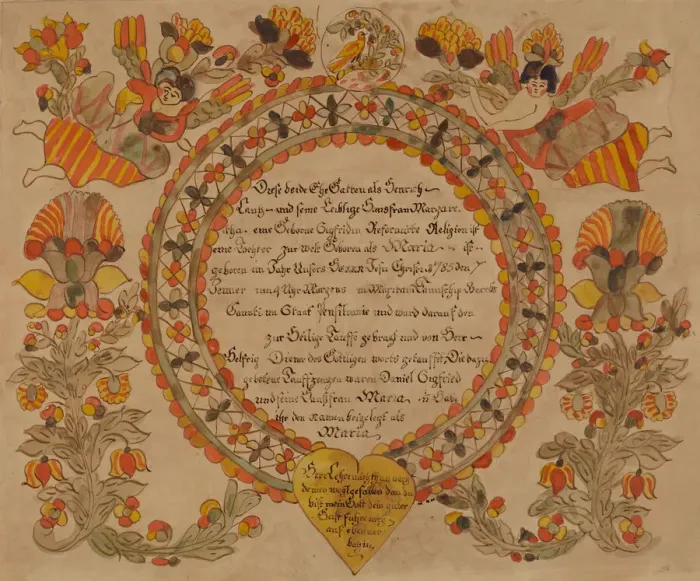 Diese beide Ehe Gatten als Henrich
Lantz und seine Leiblige Hausfrau Margare
tha eine Geborne Sigfridin Reformirte Religion ist
eine Tochter zur Welt Geboren als Maria ist
geboren im Jahr Unsers HERRN Jesu Christi 1785 den 7
Jenner um 4 Uhr Morgens in Maxitani Taunschip Bercks
Caunti im Staat Pensilvanie und ward darauf den
zur Heilige Tauffe gebragt und von Herr
Helfrig Diener des Göttligen worts getauffet Die dazu
gebetene Tauffzeugen waren Daniel Sigfried
und seine Haussfrau Maria u: hab
ihr den namen beigelegt als
Maria
Herr Lehre mich thun nach
deinen wohlgefallen den du
bist mein Gott dein guter
Geist führe mich
auf ebener
bahn